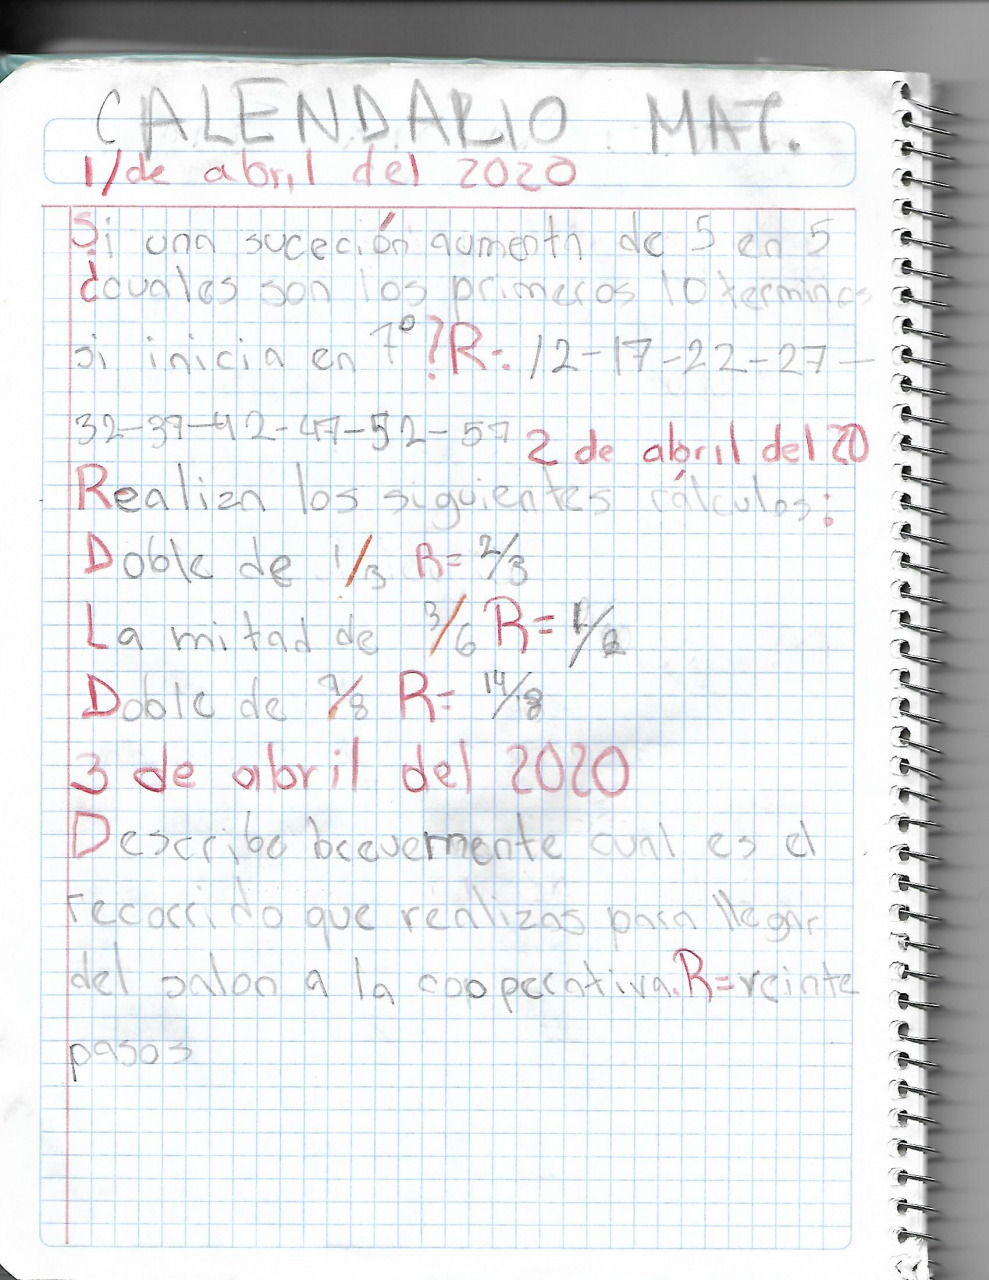 CALENDARIO MAT.
1/de abril del 2020
Si una suceción aumenta de 5 en 5
¿cuales son los primeros 10 terminos
si inicia en 7° ? R= 12-17-22-27-
32-37-42-47-52-57 2 de abril del 20
Realiza los siguientes cálculos:
Doble de 1/3 R= 2/3
La mitad de 3/6 R= 1/2
Doble de 7/8 R= 14/8
3 de abril del 2020
Describe brevemente cual es el
recorrido que realizas para llegar
del salon a la cooperativa. R=veinte
pasos